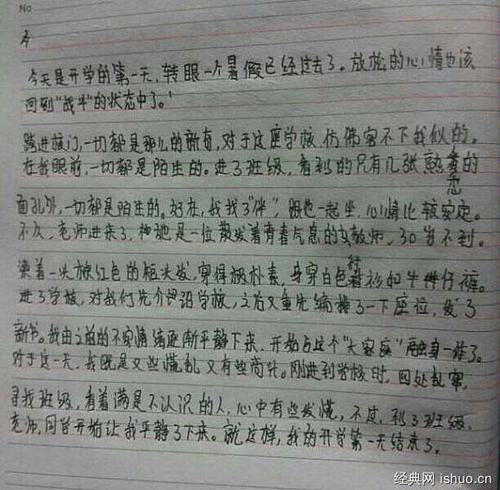 No
今
今天是开学的第一天，转眼一个暑假已经过去了。放松的心情也该
回到"战斗"的状态中了。
跨进校门，一切都是那么的新奇，对于这座学校，仿佛容不下我似的。
在我眼前，一切都是陌生的。进了班级，看到的只有几张熟悉的
面孔外，一切都是陌生的。好在，我找了"伴"，跟他一起坐，心情比较安定。
不久，老师进来了，她是一位散发着青春气息的女教师，30岁不到。
染着一头棕红色的短头发，穿得很朴素，身穿白色衬衫和牛仔裤。
进了学校，对我们先介绍学校，之后又重先编排了一下座位，发了
新书。我由之前的不安情绪逐渐平静下来，开始与这个"大家庭"融为一体了。
对于这一天，我既是又些慌乱又有些。刚进到学校时，四处乱窜，
寻找班级，看着满是不认识的人，心中有些发慌，不过，到了班级，
老师，同学开始让我平静了下来。就这样，我的开学第一天结束了。
经典网 ishuo.cn